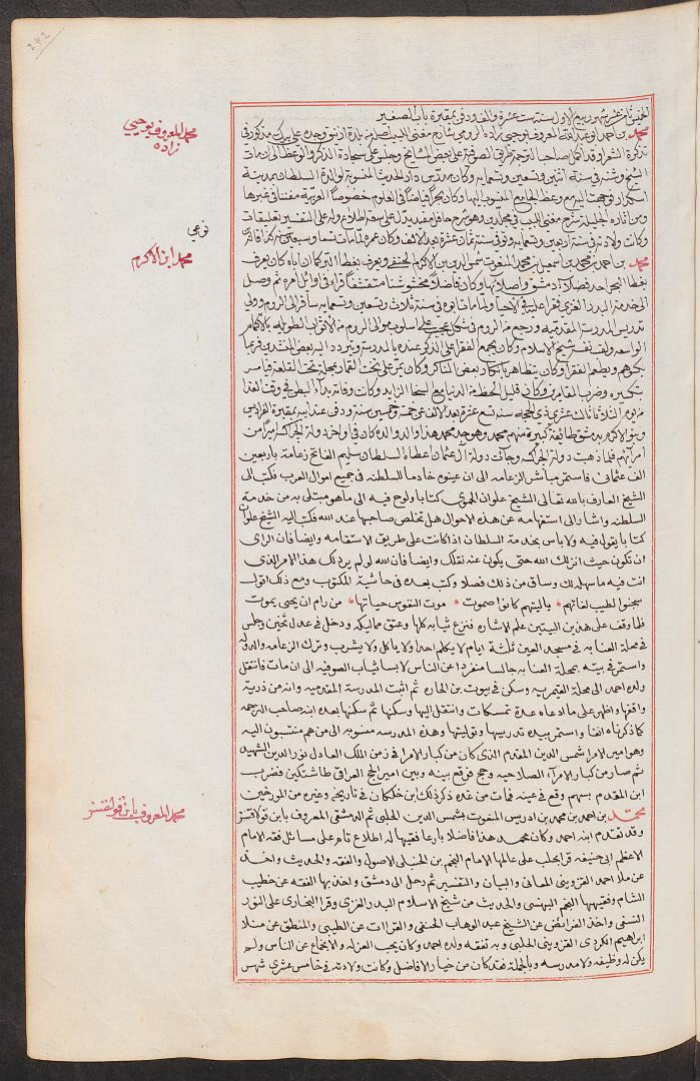 ٢٤٢
الخميس ثامن عشر شهر ربيع الاول سنة ست عشرة والف ودفن بمقبرة باب الصغير
محمد المعروف بوحيي زاده
محمد بن احمد ابو عبد الله المعروف بوحيي زاده الرومي شارح مغني اللبيب
تذكرة الشعرا وقد اكمل صاحب الترجمة طريق الصوفية على بعض المشايخ وجلس على سجادة الذكر والوعظ الى ان مات
الشيخ في سنة اثنين وتسعين وتسعمايه وكان مدرس دار الحديث المنسوبة لوالدة السلطان بمدينة
اسكدار ثم وعظ الجامع المنسوب اليها وكان بحرا فياضا في العلوم خصوصا العربية مفننا في غيرها
ومن اثاره الجليلة شرح مغني اللبيب في مجلدين وهو شرح حافل مفيد يدل على سعة اطلاعه وله على التفسير تعليقات
وكانت ولادته في سنة اربعين وتسعمايه وتوفي في سنة ثمان عشرة بعد الالف وكان عمره لما مات تسعا وسبعين سنة كذا قاله
نوعي
محمد ابن الاكرم
محمد بن احمد بن محمد بن اسمعيل بن محمد المنعوت شمس الدين بن الاكرم الحنفي ويعرف بغطا الدبس كان اباه كان يعرف
بغطا احد فضلا دمشق واصلائها وكان فاضلا متقشفا قرا في اوائل امره ثم وصل
الى خدمة البدر الغزي فقرا عليه في الاحيا ولما مات ابوه في سنة ثلاث وتسعين وتسعمايه سافر الى الروم وولي
تدريس المدرسة المقدميه ورجع من الروم في شكل عجيب على اسلوب موالي الروم من الاثواب الطويله بالاكمام
الواسعه ولقب نفسه شيخ الاسلام وكان يجمع الفقرا على الذكر عنده بالمدرسة ويتردد اليه بعض المنشدين فربما
يكرمهم ويطعم الفقرا وكان يتظاهر بانكار بعض المناكر وكان يمر على تخت القمار بمحلة تحت القلعة فيامر
بتكسيره وضرب المقامرين وكان قليل الحظ من الدنيا مع السخا الزايد وكانت وفاته بداء البطن في وقت الغدا
من يوم الثلاثا ثالث عشري ذي الحجه سنه تسع عشرة بعد الالف عن خمسة وخمسين سنة ودفن عند ابيه بمقبرة الفراديس
وبنو الاكرم بدمشق طائفة كبيرة منهم محمد وهو جد محمد هذا والد والده كان في اواخر دولة الجراكسة اميرا من
امرائهم فلما ذهبت دولة الجراكسه وجائت دولة ال عثمان اعطاه السلطان سليم الفاتح زعامة باربعين
الف عثماني فاستمر مباشر الزعامه الى ان عينوه خادما للسلطنه في جميع اموال العرب فكتب الى
الشيخ العارف بالله تعالى الشيخ علوان الحموي كتابا ولوح فيه الى ما هو مبتلى به من خدمة
السلطنه واشار الى استفهامه عن هذه الاحوال هل تخلص صاحبها عند الله فكتب اليه الشيخ علوان
كتابا يقول فيه ولا باس بخدمة السلطان اذا كانت على طريق الاستقامه وايضا فان الراي
ان تكون حيث انزلك الله حتى يكون عنه نقلك وايضا فان الله لو لم يرد لك هذا الامر الذي
انت فيه ما سهله لك وساق من ذلك فصلا وكتب بعده في حاشية المكتوب ومع ذلك اقول
سجنوا لطيب لغاتهم * ياليتهم كانوا صموت * موت النفوس حياتها * من رام ان يحيى يموت
فلما وقف على هذين البيتين علم الاشاره فنزع ثيابه كلها وعتق مماليكه ودخل في عدل ثخين وجلس
في محلة العنابه في مسجد العين ثلثة ايام لا يكلم احدا ولا ياكل ولا يشرب وترك الزعامه والدوله
واستمر في بيته بمحلة العنابه جالسا منفردا عن الناس لابسا ثياب الصوفيه الى ان مات فانتقل
ولده احمد الى محلة القيمريه وسكن في بيوت بن الحاره ثم اثبت المدرسة المقدميه وانه من ذرية
واقفها واظهر على ما ادعاه عدة تمسكات وانتقل اليها وسكنها ثم سكنها بعده ابنه صاحب الترجمه
كما ذكرناه انفا واستمر بيده تدريسها وتوليتها وهذه المدرسه منسوبه الى من هم منتسبون اليه
وهو امير الامرا شمس الدين المقدم الذي كان من كبار الامرا في زمن الملك العادل نور الدين الشهيد
ثم صار من كبار الامراء الصلاحيه وحج فوقع بينه وبين امير الحج العراقي طاشتكين فضرب
ابن المقدم بسهم وقع في عينه فمات من غده ذكر ذلك ابن خلكان في تاريخه وغيره من المورخين
محمد المعروف بابن قولقسز
محمد بن احمد بن محمد بن ادريس المنعوت بشمس الدين الحلبي ثم الدمشقي المعروف بابن قولاقسز
وقد تقدم ابنه احمد وكان محمد هذا فاضلا بارعا فقيها له اطلاع تام على مسائل فقه الامام
الاعظم ابي حنيفه قرا بحلب على عالمها الامام النجم بن الحنبلي الاصول والفقه والحديث واخذ
عن ملا احمد القزويني المعاني والبيان والتفسير ثم رحل الى دمشق واخذ بها الفقه عن خطيب
الشام وفقيهها النجم البهنسي والحديث من شيخ الاسلام البدر الغزي وقرا البخاري على النور
النسفي واخذ الفرائض عن الشيخ عبد الوهاب الحنفي والقراات عن الطيبي والمنطق عن منلا
ابراهيم الكردي القزويني الحلبي وبه تفقه ولده احمد وكان يحب العزله والانجماع عن الناس ولم
يكن له وظيفه ولا مدرسه وبالجملة فقد كان من خيار الافاضل وكانت ولادته في خامس عشري شهر